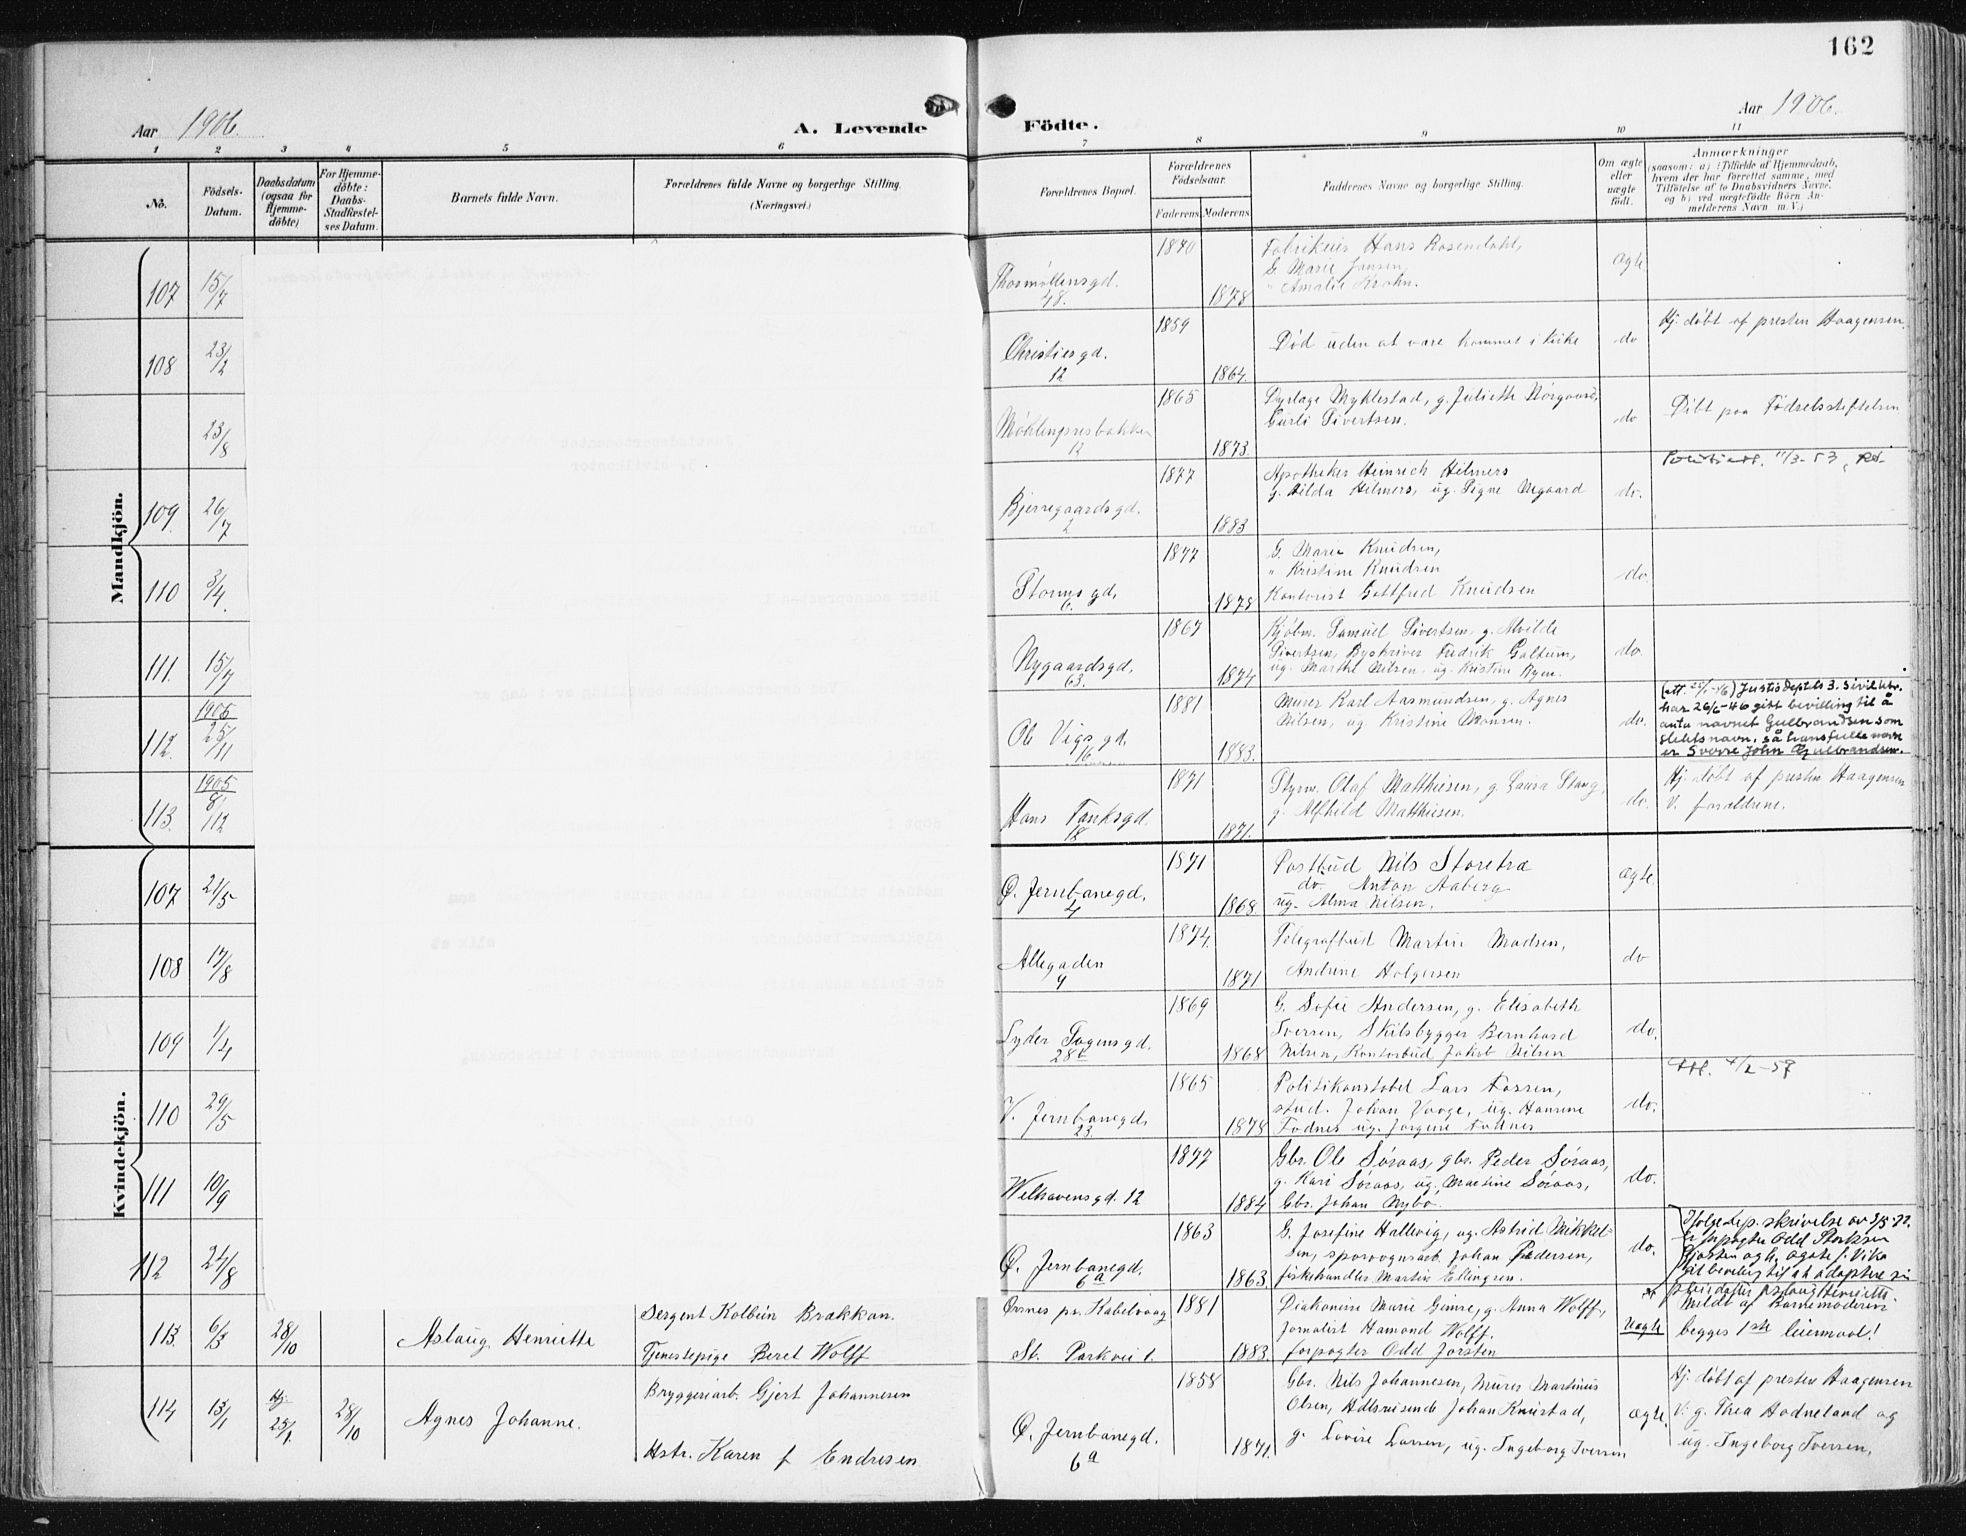 162
Aar 1906.
A. Levende Födte.
Aar 1906.
1 2 3 4 5 6 7 8 9 10 11
No.
Födsels-Datum.
Daabsdatum (ogsaa for Hjemmedöbte)
For Hjemmedöbte: Daabs-Stadfæstelses Datum.
Barnets fulde Navn.
Forældrenes fulde Navne og borgerlige Stilling.
(Næringsvei.)
Forældrenes Bopæl.
Forældrenes Födselsaar.
Faderens Moderens
Faddernes Navne og borgerlige Stilling.
Om ægte eller uægte födt.
Anmærkninger
(saasom: a) i Tilfælde af Hjemmedaab, hvem der har forrettet samme, med Tilföielse af to Daabsvidners Navne, og b) ved uægtefödte Börn Anmelderens Navn m. V.)
Mandkjön.
107 15/7
Thormøllensgd. 48.
1870 1878
Fabrikeier Hans Rosendahl,
G. Marie Jansen
" Amalie Krohn.
ægte
108 23/2
Christiesgd. 12
1859 1864.
Død uden at være kommet i kirke
do
Hj. døbt af presten Haagensen.
23/8
Møhlenprisbakken 12
1865 1873.
Dyrlæge Myklestad, g. Juliette Nörgaard,
Gurli Sivertsen.
do
Døbt paa Fødselsstiftelsen
109. 26/7
Bjerregaardsgd. 2
1877 1883
Apotheker Heinrich Hilmers
g. Hilda Hilmers, ug. Signe Nygaard
do.
11/3-53,
110 3/4.
Stormsgd. 6.
1877 1878
G. Marie Knudsen,
" Kristine Knudsen
Kontorist Gottfred Knudsen
do.
111. 15/7
Nygaardsgd. 63.
1867 1874
Kjøbm. Samuel Sivertsen, g. Alvilde
Sivertsen, Byskriver Fredrik Galtung,
ug. Marthe Nilsen, ug. Kristine Øyen.
do
112. 1905 25/11
Ole Vigs gd. 16
1881 1883.
Murer Karl Aasmundsen, g. Agnes
Nilsen, ug. Kristine Monsen.
do.
Justisdeptets 3. sivilktr.
har 26/6-46 gitt bevilling til å
anta navnet Gulbrandsen som
slektsnavn, så hans fulle navn
er Sverre John Gulbrandsen.
113. 1905 8/12
Hans Tanksgd. 18
1871 1871.
Styrm. Olaf Matthiesen, g. Laura Stang,
g. Alfhild Matthiesen.
do.
Hj. døbt af presten Haagensen
V. forældrene.
Kvindekjön.
107 21/5
Ø. Jernbanegd. 4
1871 1868
Postbud Nils Storetræ
do Anton Aaberg
ug. Alma Nilsen.
ægte.
108 17/8
Allegaden 9
1874. 1871
Telegrafbud Martin Madsen,
Andrine Holgersen
do
109 1/4
Lyder Sagensgd. 28b
1869 1868
G. Sofie Andersen, g. Elisabeth
Iversen, Skibsbygger Bernhard
Nilsen, Kontorbud Jakob Nilsen
do.
110 29/5
V. Jernbanegd. 23.
1865 1878
Politikonstabel Lars Fossen,
stud. Johan Vaage, ug. Hansine
Fodnes ug. Jørgine Fodnes
do.
Att. 4/2-59
111 10/9
Welhavensgd. 12
1877 1884
Gbr. Ole Søraas, gbr. Peder Søraas,
g. Kari Søraas, ug. Martine Søraas,
Gbr. Johan Nybø.
do.
112 24/8
Ø. Jernbanegd. 6a
1863 1863
G. Josefine Hallvig, ug. Astrid Mikkel-
sen, sporvognsarb. Johan Pedersen,
fiskehandler Martin Ellingsen.
do.
Ifølge dep. skrivelse av 3/5-22
er forpagter Odd Storksen
Hjorsten og h. agate f. Vika
gitt beveling til at adoptere sin
pleiedatter Aslaug Henriette
113. 6/3 28/10
Aslaug Henriette
Sergent Kolbein Brækkan.
Tjenestepige Beret Wolff
Ørsnes pr. Kabelvaag
St. Parkvei 1.
1881 1883.
Diakonisse Marie Gimre, g. Anna Wolff,
Jornalist Hamond Wolff.
forpagter Odd Jorsten
Uægte
Meldt af Barnemoderen
begges 1ste leiermaal!
114 13/1 Hj. 25/1. 28/10
Agnes Johanne.
Bryggeriarb. Gjert Johannesen
Hstr. Karen f. Endresen
Ø. Jernbanegd. 6a
1858 1871.
Gbr. Nils Johannesen, Murer Martinus
Olsen, Hdlsreisende Johan Knustad,
g. Lovise Larsen, ug. Ingeborg Iversen
ægte.
Hj. døbt af presten Haagensen
V. g. Thea Hodneland og
ug. Ingeborg Iversen,